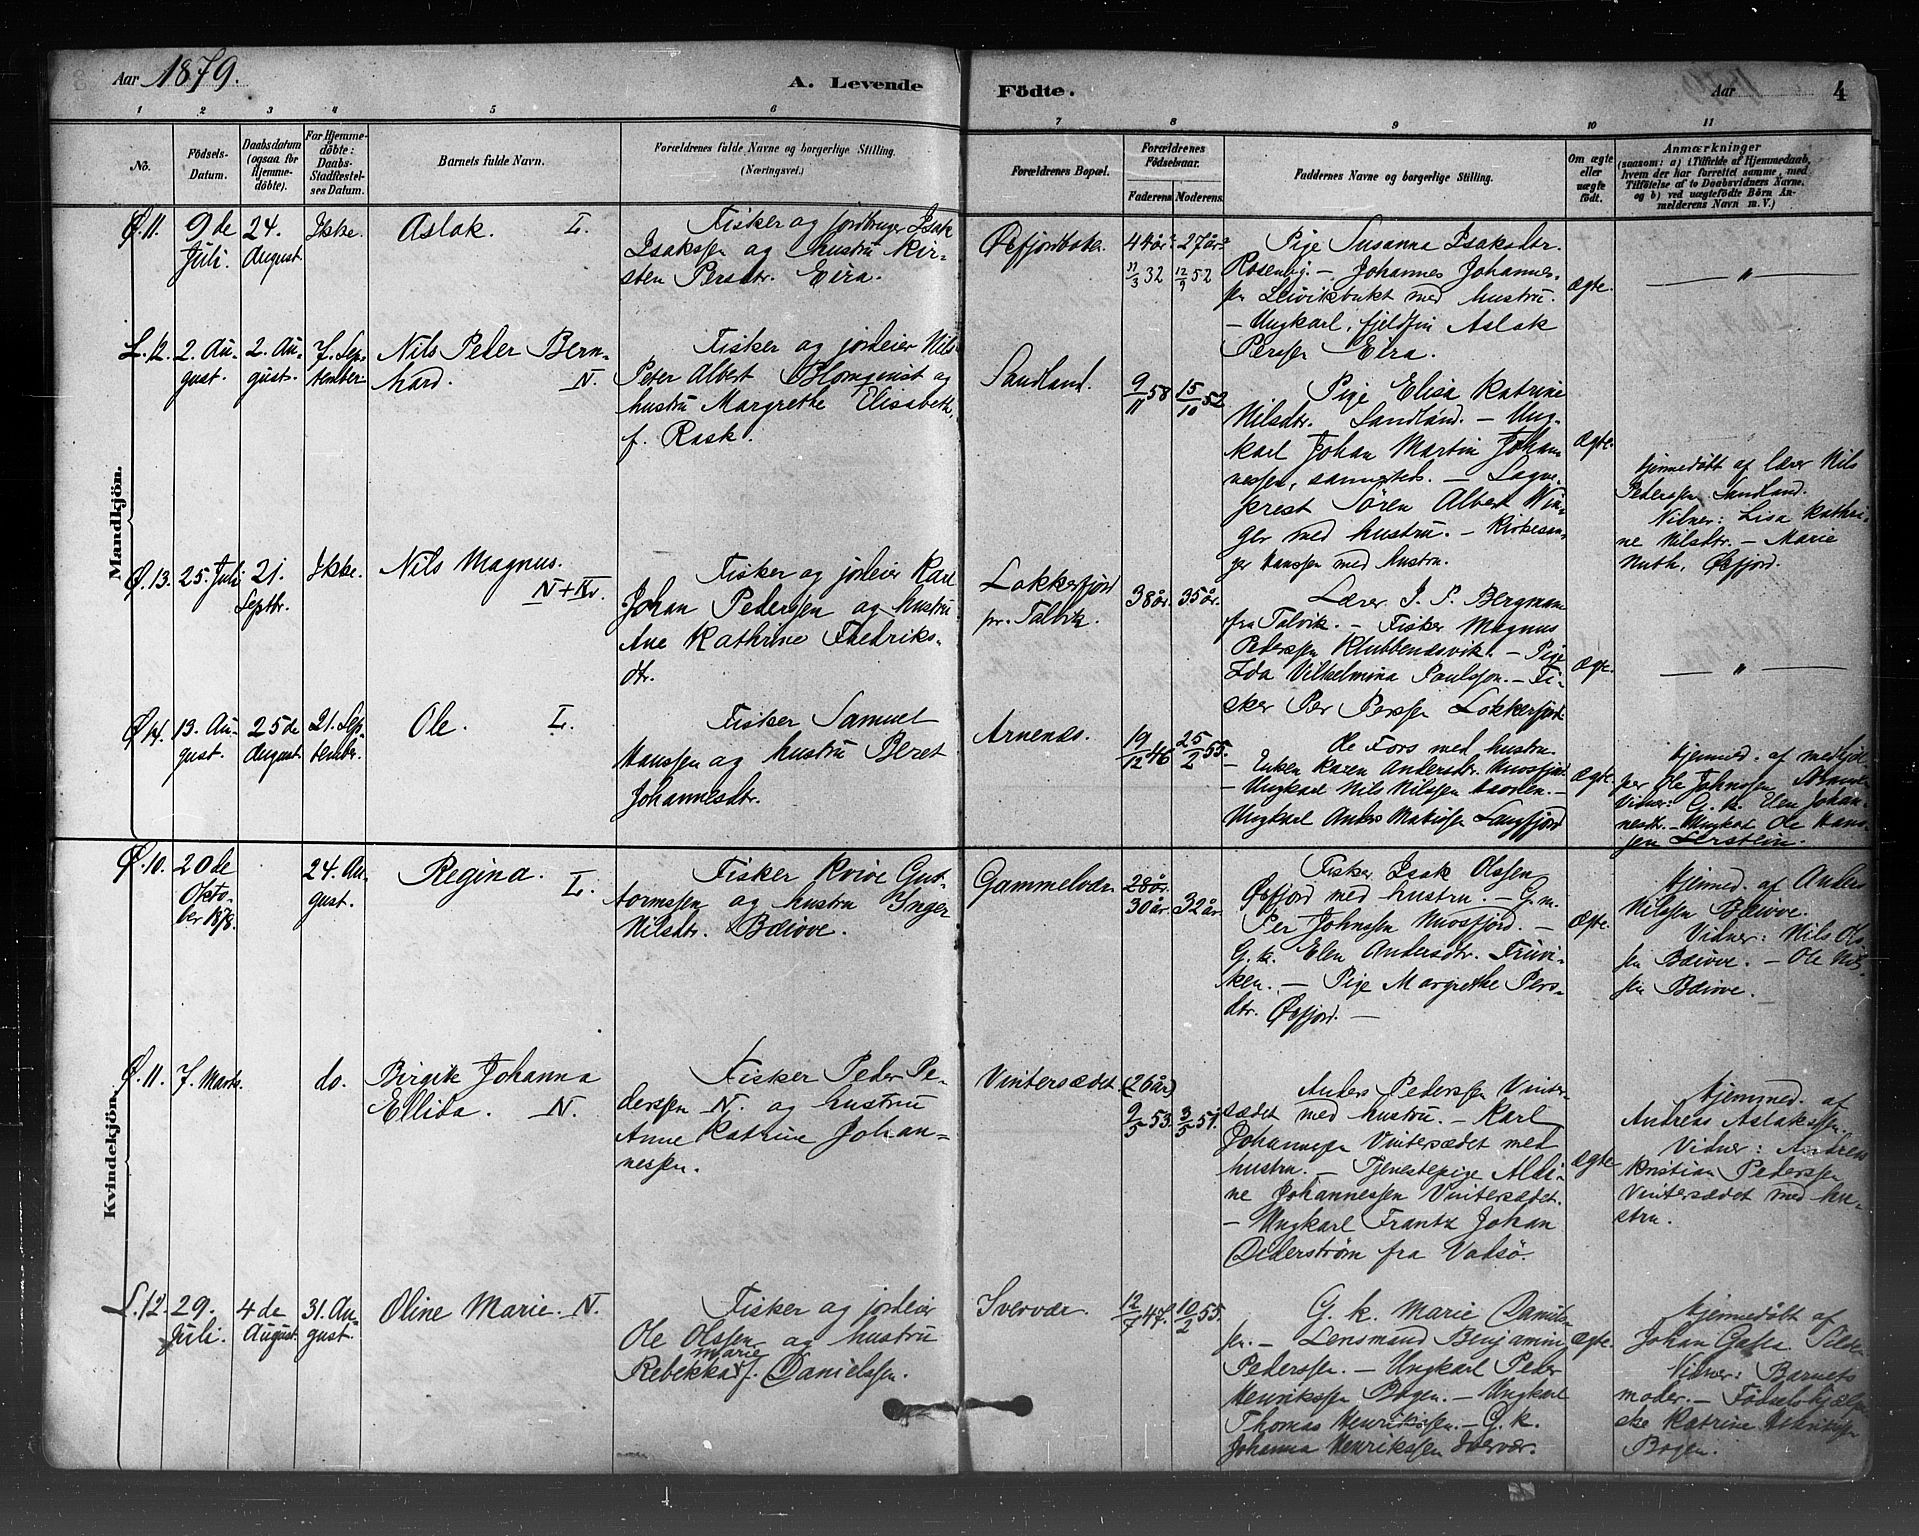 Aar 1879.
A. Levende Födte.
Aar
4
1 2 3 4 5 6 7 8 9 10 11
No.
Födsels-Datum.
Daabsdatum (ogsaa for Hjemme-döbte).
For Hjemme-döbte: Daabs-Stadfæstel-ses Datum.
Barnets fulde Navn.
Forældrenes fulde Navne og borgerlige Stilling. (Næringsvei.)
Forældrenes Bopæl.
Forældrenes Födselsaar.
Faderens. Moderens.
Faddernes Navne og borgerlige Stilling.
Om ægte eller uægte födt.
Anmærkninger
(saasom: a) i Tilfælde af Hjemmedaab, hvem der har forrettet samme, med Tilföielse af to Daabsvidners Navne, og b) ved uægtefödte Börn Anmelderens Navn m. V.)
Mandkjön.
Ø. 11.
9 de Juli.
24. August.
Ikke.
Aslak. L.
Fisker og jordbruger Isak
Isakssen og hustru Kir-
sten Persdtr. Eira.
Øxfjordbotn.
44 år 11/3 32
27 år 12/9 52
Pige Susanna Isaksdtr.
Johannes Johannes-
sen Leivikbukt med hustru.
– Ungkarl, fjeldfin Aslak
Perssen Eira.
Ægte.
— " —
L. 12.
2. Au-
gust.
2. Au-
gust.
7. Sep-
tember.
Nils Peder Bern-
hard. N.
Fisker og jordeier Nils
Peter Albert Blomqvist og
hustru Margrethe Elisabeth,
f. Rask.
Sandland.
9/11 58
15/10 52
Pige Elisa Katrine
Nilsdtr. Sandland. – Ung-
karl Johan Martin Johan-
nessen, sammesteds. – Sogne-
prest Sören Albert Win-
ger med hustru. – Kirkesan-
ger Hanssen med hustru.
Ægte.
Hjemmedöbt af lærer Nils
Pederssen Sandland.
Vidner: Lisa Kathri-
ne Nilsdtr. – Marie
Muth, Øxfjord.
Ø. 13.
25. Juli
21. Septbr.
Ikke.
Nils Magnus.
N + Kv.
Fisker og jordeier Karl
Johan Pederssen og hustru
Ane Kathrine Fredriks-
dtr.
Lokkerfjord
pr. Talvik.
38 år.
35 år.
Lærer J. P. Bergman
fra Talvik. – Fisker Magnus
Pederssen Klubbenæsvik. – Pige
Ida Vilhelmina Paulsson. – Fi-
sker Per Perssen Lokkerfjord
Ægte.
— " —
Ø. 14.
13. Au-
gust.
25 de
August.
21. Sep-
tember.
Ole. L.
Fisker Samuel
Hanssen og hustru Beret
Johannesdtr.
Arnenæs.
19/12 46
25/2 55.
Ole Fors med hustru.
– Enken Karen Andersdtr.
– Ungkarl Nils Nilssen
Ungkarl Anders Langfjord
Ægte.
Hjemmed. af medhjæl-
per Ole Johnssen
Vidner: G. k. Elen Johan-
nesdtr. – Ungkarl Ole Hans-
sen
Kvindekjön.
Ø. 10.
20 de
Okto-
ber 1878.
24. Au-
gust.
Regina. L.
Fisker Kvive Gut-
tormssen og hustru Inger
Nilsdtr. Bæivve.
Gammelvær.
28 år.
30 år.
32 år.
Fisker Isak Olssen
Øxfjord med hustru. – G. m.
Per Johnssen Nuosfjord. –
G. k. Elen Andersdtr. Truvi-
ken. – Pige Margrethe Pers-
dtr. Øxfjord. –
Ægte.
Hjemmed. af Anders
Nilssen Bæivve.
Vidner: Nils Ols-
sen Bæivve. – Ole Nils-
sen Bæivve. –
Ø. 11.
7. Marts.
do.
Birgit Johanna
Ellida. N.
Fisker Peder Pe-
derssen N. og hustru
Anne Katrine Johan-
nessen.
Vintersædet
(26 år)
9/5 53.
3/5 51.
Anders Pederssen Vinter-
sædet med hustru. – Karl
Johannessen Vintersædet med
hustru. – Tjenestepige Aldi-
ne Johannessen Vintersædet.
– Ungkarl Frantz Johan
Cederström fra Vadsö.
Ægte
Hjemmed. af
Andreas Aslakssen.
Vidner: Andreas
Kristian Pederssen
Vintersædet med hu-
stru.
L. 12.
29.
Juli.
4 de
August.
31. Au-
gust.
Oline Marie. N.
Fisker og jordeier
Ole Olssen og hustru
Rebekka Marie f. Danielssen.
Svervær.
12/7 47.
10/2 55.
G. k. Marie Daniels-
sen. – Lensmand Benjamin
Pederssen. – Ungkarl Peder
Henrikssen Bogen. – Ungkarl
Thomas Henrikssen. – G. k.
Johanna Henrikssen Svervær.
Ægte.
Hjemmedöbt af
Johan
Vidner: Barnets
moder. – Födselshjælper-
ske Katrine Henrikssen
Bogen.